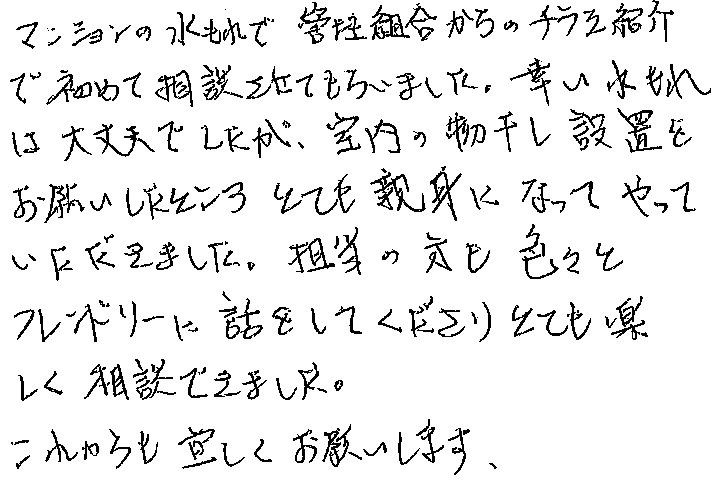 マンションの水もれで管理組合からのチラシ紹介
で初めて相談させてもらいました。幸い水もれ
は大丈夫でしたが、室内の物干し設置を
お願いしたところとても親身になってやって
いただきました。担当の方も色々と
フレンドリーに話をしてくださりとても楽
しく相談できました。
これからも宜しくお願いします、